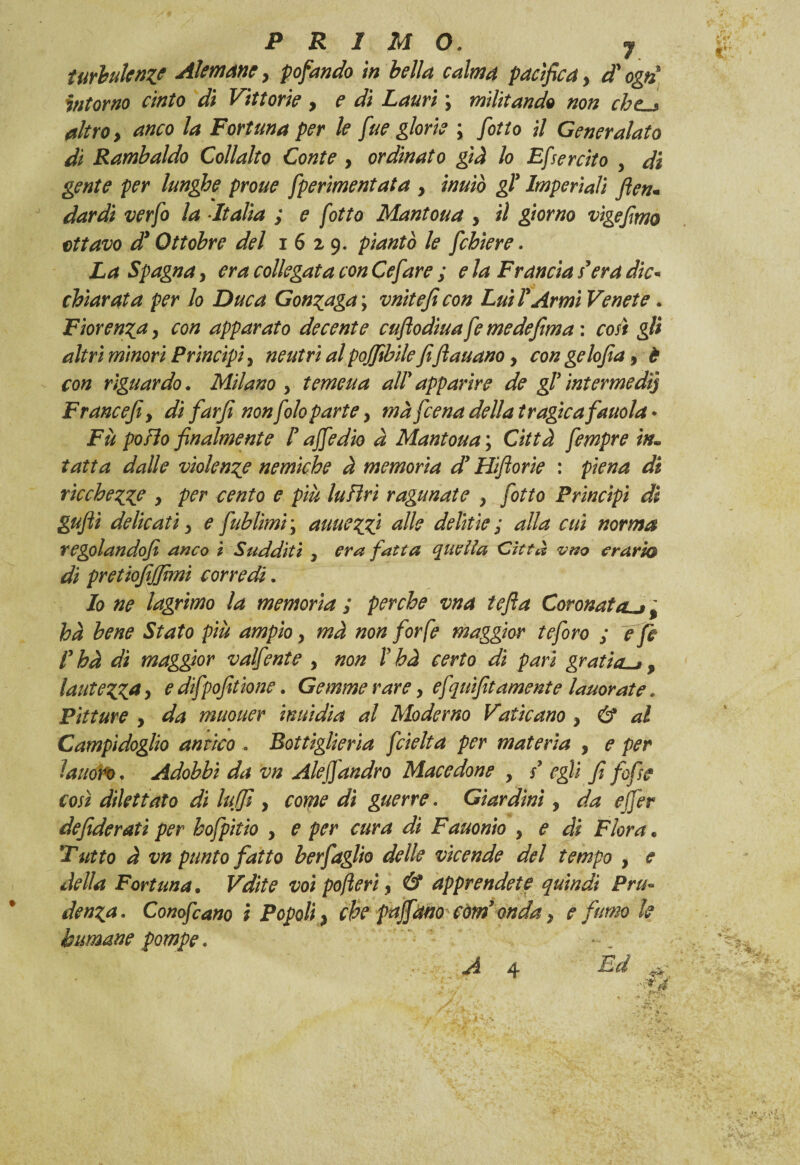 PRIMO. 7
turbulenze Alemane, posando in bella calma pacifica, d' ogn'
intorno cinto di Vittorie, e di Lauri; militando non che
altro, anco la Fortuna per le sue glorie; sotto il Generalato
di Rambaldo Collalto Conte, ordinato già lo Essercito, di
gente per lunghe proue sperimentata, inuiò gl' Imperiali sten-
dardi verso la Italia; e sotto Mantoua, il giorno vigesimo
ottavo d' Ottobre del 1629. piantò le schiere.
La Spagna, era collegata con Cesare; e la Francia s'era dic-
chiarata per lo Duca Gonzaga; vnitesi con Lui l' Armi Venete.
Fiorenza, con apparato decente custodiua se medesima: così gli
altri minori Principi, neutri al possibile si stauano, con gelosia, e
con riguardo. Milano, temeua all' apparire de gl' intermedij
Francesi, di farsi non solo parte, mà scena della tragica fauola.
Fù posto finalmente l' assedio à Mantoua; Città sempre in-
tatta dalle violenze nemiche à memoria d' Historie: piena di
ricchezze, per cento e più lustri ragunate, sotto Principi di
gusti delicati, e sublimi; auuezzi alle delitie; alla cui norma
regolandosi anco i Sudditi, era fatta quella Città vno erario
di pretiosissimi corredi.
Io ne lagrimo la memoria; perche vna testa Coronata,
hà bene Stato più ampio, mà non forse maggior tesoro; e se
l' hà di maggior valsente, non l' hà certo di pari gratia,
lautezza, e dispositione. Gemme rare, esquisitamente lauorate.
Pitture, da muouer inuidia al Moderno Vaticano, & al
Campidoglio antico. Bottiglieria scielta per materia, e per
lauoro. Adobbi da vn Alessandro Macedone, s' egli si fosse
così dilettato di lussi, come di guerre. Giardini, da esser
desiderati per hospitio, e per cura di Fauonio, e di Flora.
Tutto à vn punto fatto bersaglio delle vicende del tempo, e
della Fortuna. Vdite voi posteri, & apprendete quindi Pru-
denza. Conoscano i Popoli, che passano com' onda, e fumo le
humane pompe.
A 4 Ed